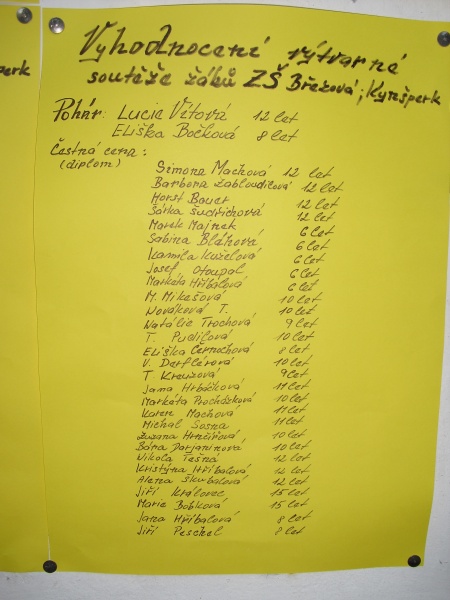 Vyhodnocení výtvarné
soutěže žáků ZŠ Březová, Kynšperk
perk
Pohár: Lucie Vítová 12 let
Eliška Bočková 8 let
Čestná cena:
(diplom)
Simona Machová 12 let
Barbora Zabloudilová 12 let
Horst Bauer 12 let
Šárka Šudřichová 12 let
Marek Majnek 6 let
Sabina Bláhová 6 let
Kamila Kuželová 6 let
Josef Otoupal 6 let
Markéta Hříbalová 6 let
M. Mikešová 10 let
Nováková T. 10 let
Natálie Trochová 9 let
T. Pudilová 10 let
Eliška Černochová 8 let
V. Darflérová 10 let
T. Kreuzová 9let
Jana Hrbáčková 11 let
Markéta Procházková 10 let
Karen Machova 11 let
Michal Sosna 11 let
Zuzana 10 let
Bára Darjaninová 10 let
Nikola Tesná 12 let
Kristýna Hříbalová 12 let
Alena Škubalová 12 let
Jiří Královec 15 let
Marie Bobková 15 let
Jana Hříbalová 8 let
Jiří Peschel 8 let